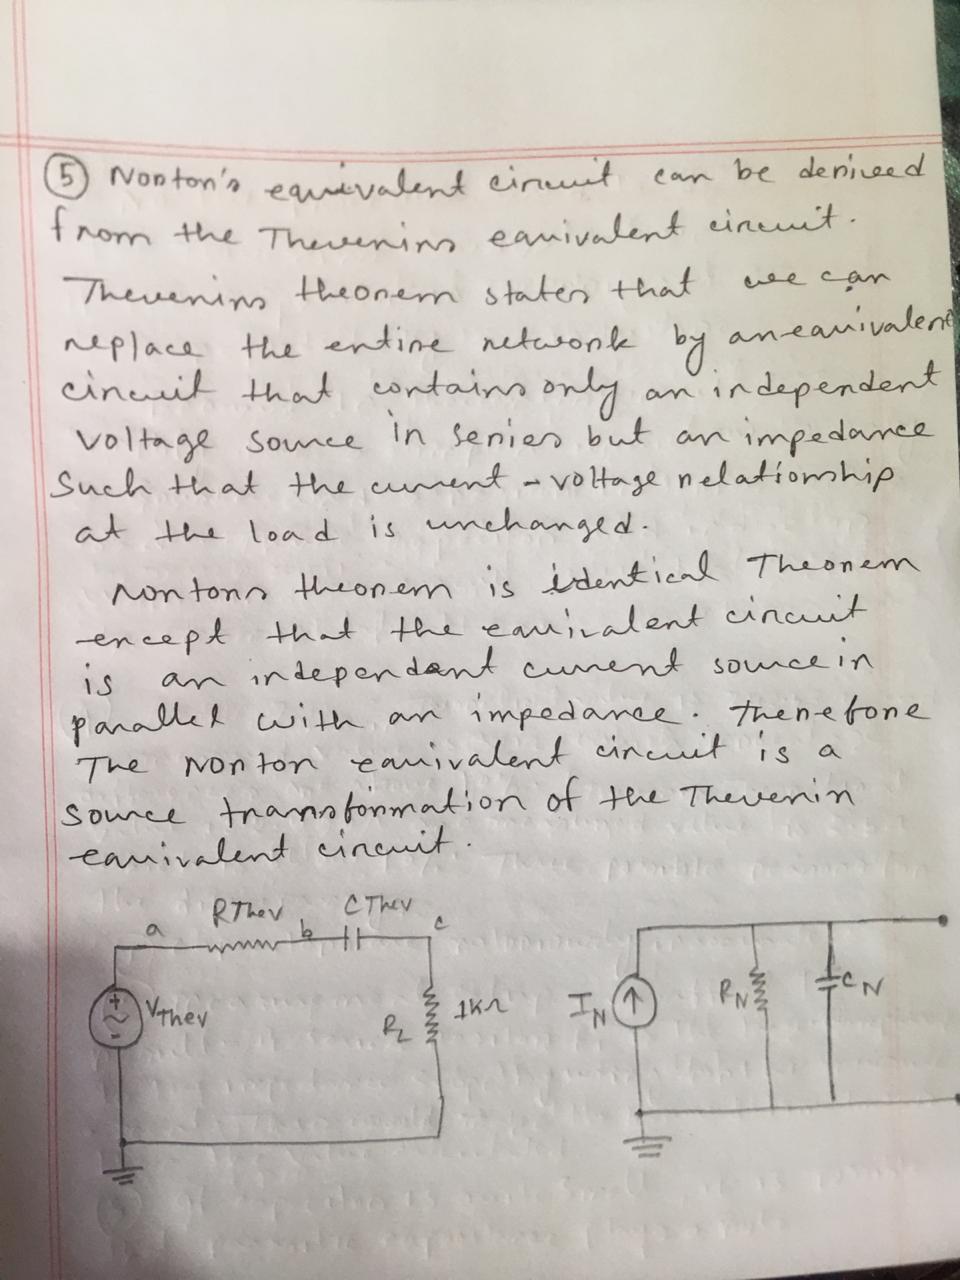 ⑤ Norton's equivalent circuit can be derived
from the Thevenins equivalent circuit.
Thevenins theorem states that we can
replace the entire network by an equivalent
circuit that contains only an independent
voltage source in series but an impedance
Such that the current - voltage relationship
at the load is unchanged.
Nortons theorem is identical Theorem
except that the equivalent circuit
is an independant current source in
parallel with an impedance. therefore
The Norton equivalent circuit is a
source transformation of the Thevenin
equivalent circuit.
a RThev b CThev c
+ - VThev
RL 1KΩ
IN RN CN